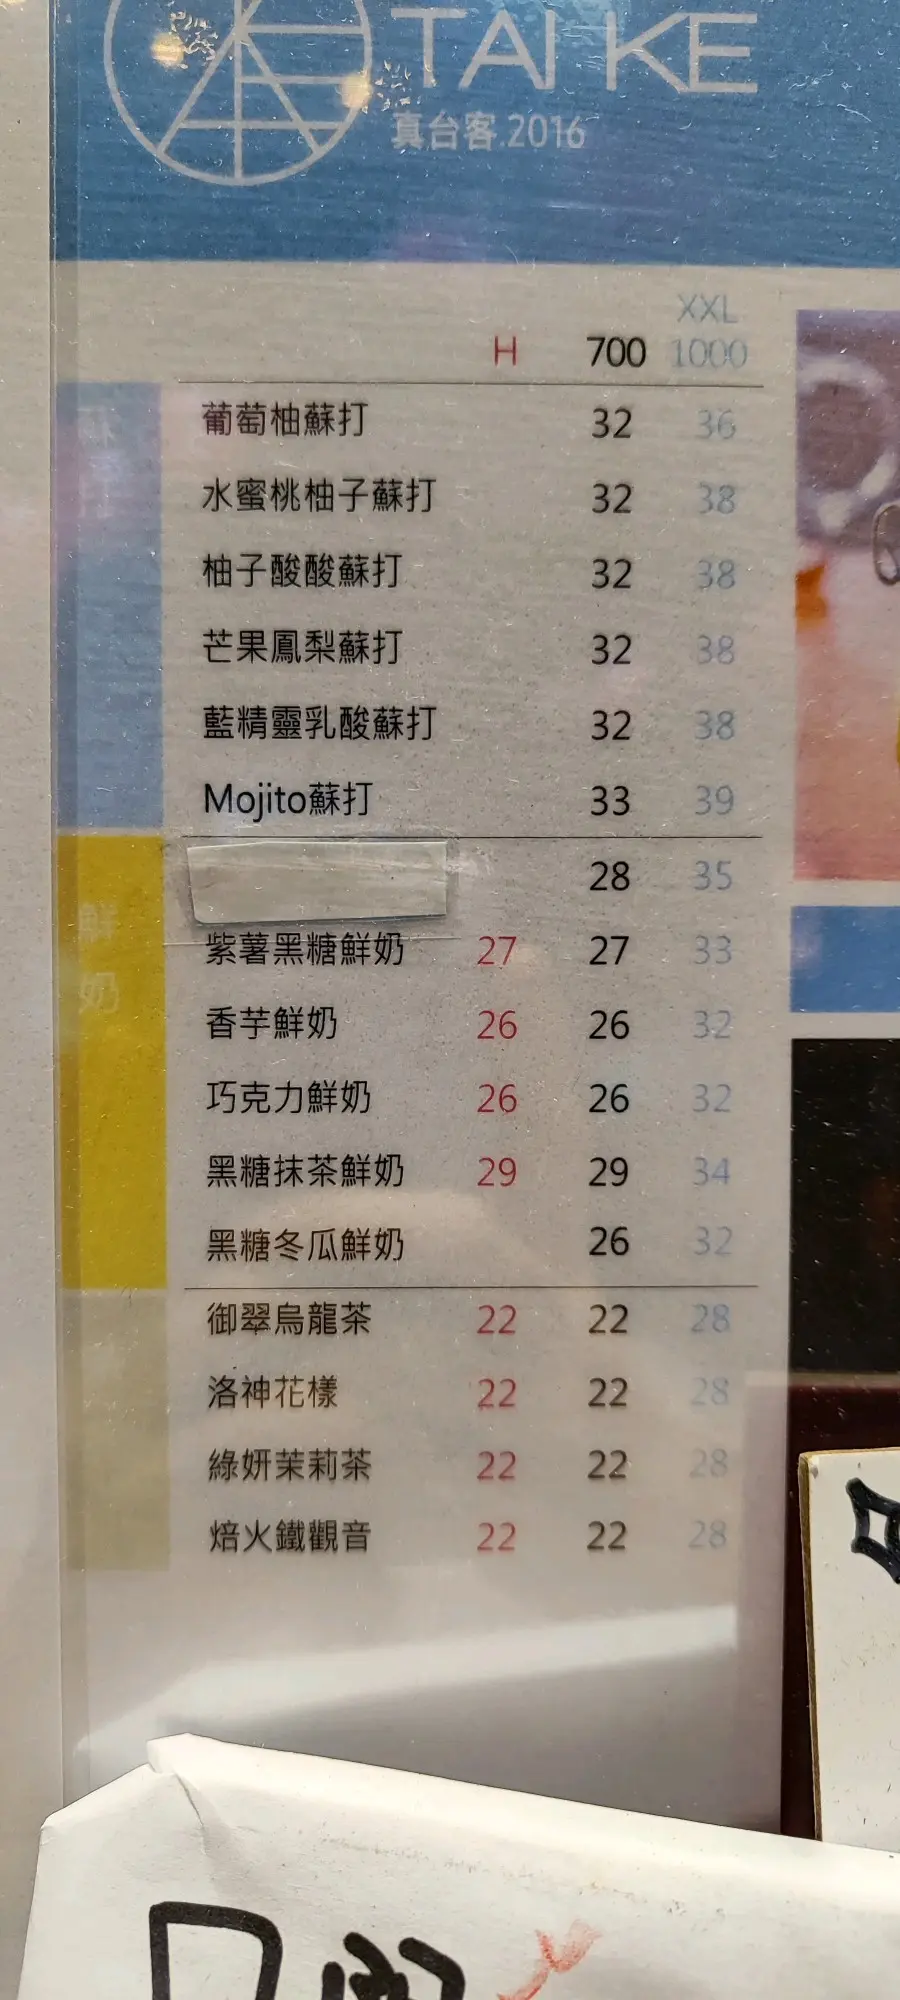 TAI KE
真台客.2016
XXL
H 700 1000
葡萄柚蘇打 32 36
水蜜桃柚子蘇打 32 38
柚子酸酸蘇打 32 38
芒果鳳梨蘇打 32 38
藍精靈乳酸蘇打 32 38
Mojito蘇打 33 39
28 35
鮮奶
紫薯黑糖鮮奶 27 27 33
香芋鮮奶 26 26 32
巧克力鮮奶 26 26 32
黑糖抹茶鮮奶 29 29 34
黑糖冬瓜鮮奶 26 32
御翠烏龍茶 22 22 28
洛神花樣 22 22 28
綠妍茉莉茶 22 22 28
焙火鐵觀音 22 22 28